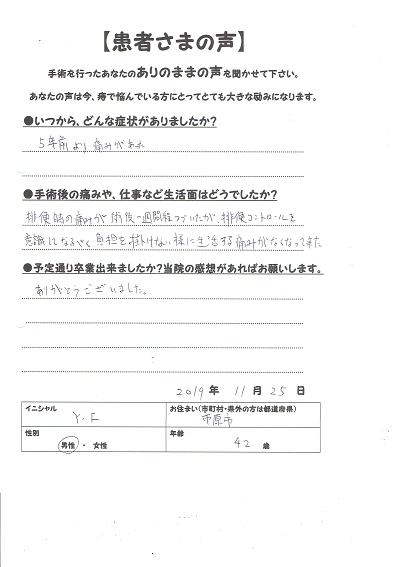 【患者さまの声】
手術を行ったあなたのありのままの声を聞かせて下さい。
あなたの声は今、痔で悩んでいる方にとってとても大きな励みになります。
●いつから、どんな症状がありましたか?
5年前より痛みがあれ
●手術後の痛みや、仕事など生活面はどうでしたか?
排便時の痛みが術後一週間程つづいたが、排便コントロールを
意識しなるべく負担を掛けない様に生活する痛みがなくなってきた
●予定通り卒業出来ましたか?当院の感想があればお願いします。
ありがとうございました。
2019 年 11 月 25 日
イニシャル
Y.F
お住まい(市町村・県外の方は都道府県)
市原市
性別
男性・女性
年齢
42 歳